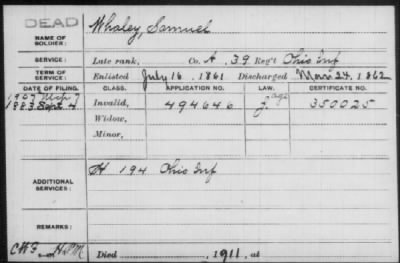 DEAD
NAME OF SOLDIER: Whaley, Samuel
SERVICE: Late rank, Co. A, 39 Reg't Ohio Inf
TERM OF SERVICE: Enlisted July 16, 1861 Discharged Mar. 24, 1862
DATE OF FILING. CLASS. APPLICATION NO. LAW. CERTIFICATE NO.
1907 7 age
1883 Sept 4 Invalid, 494646 J. 350025
Widow,
Minor,
ADDITIONAL SERVICES: H 194 Ohio Inf
REMARKS:
Died 1911, at